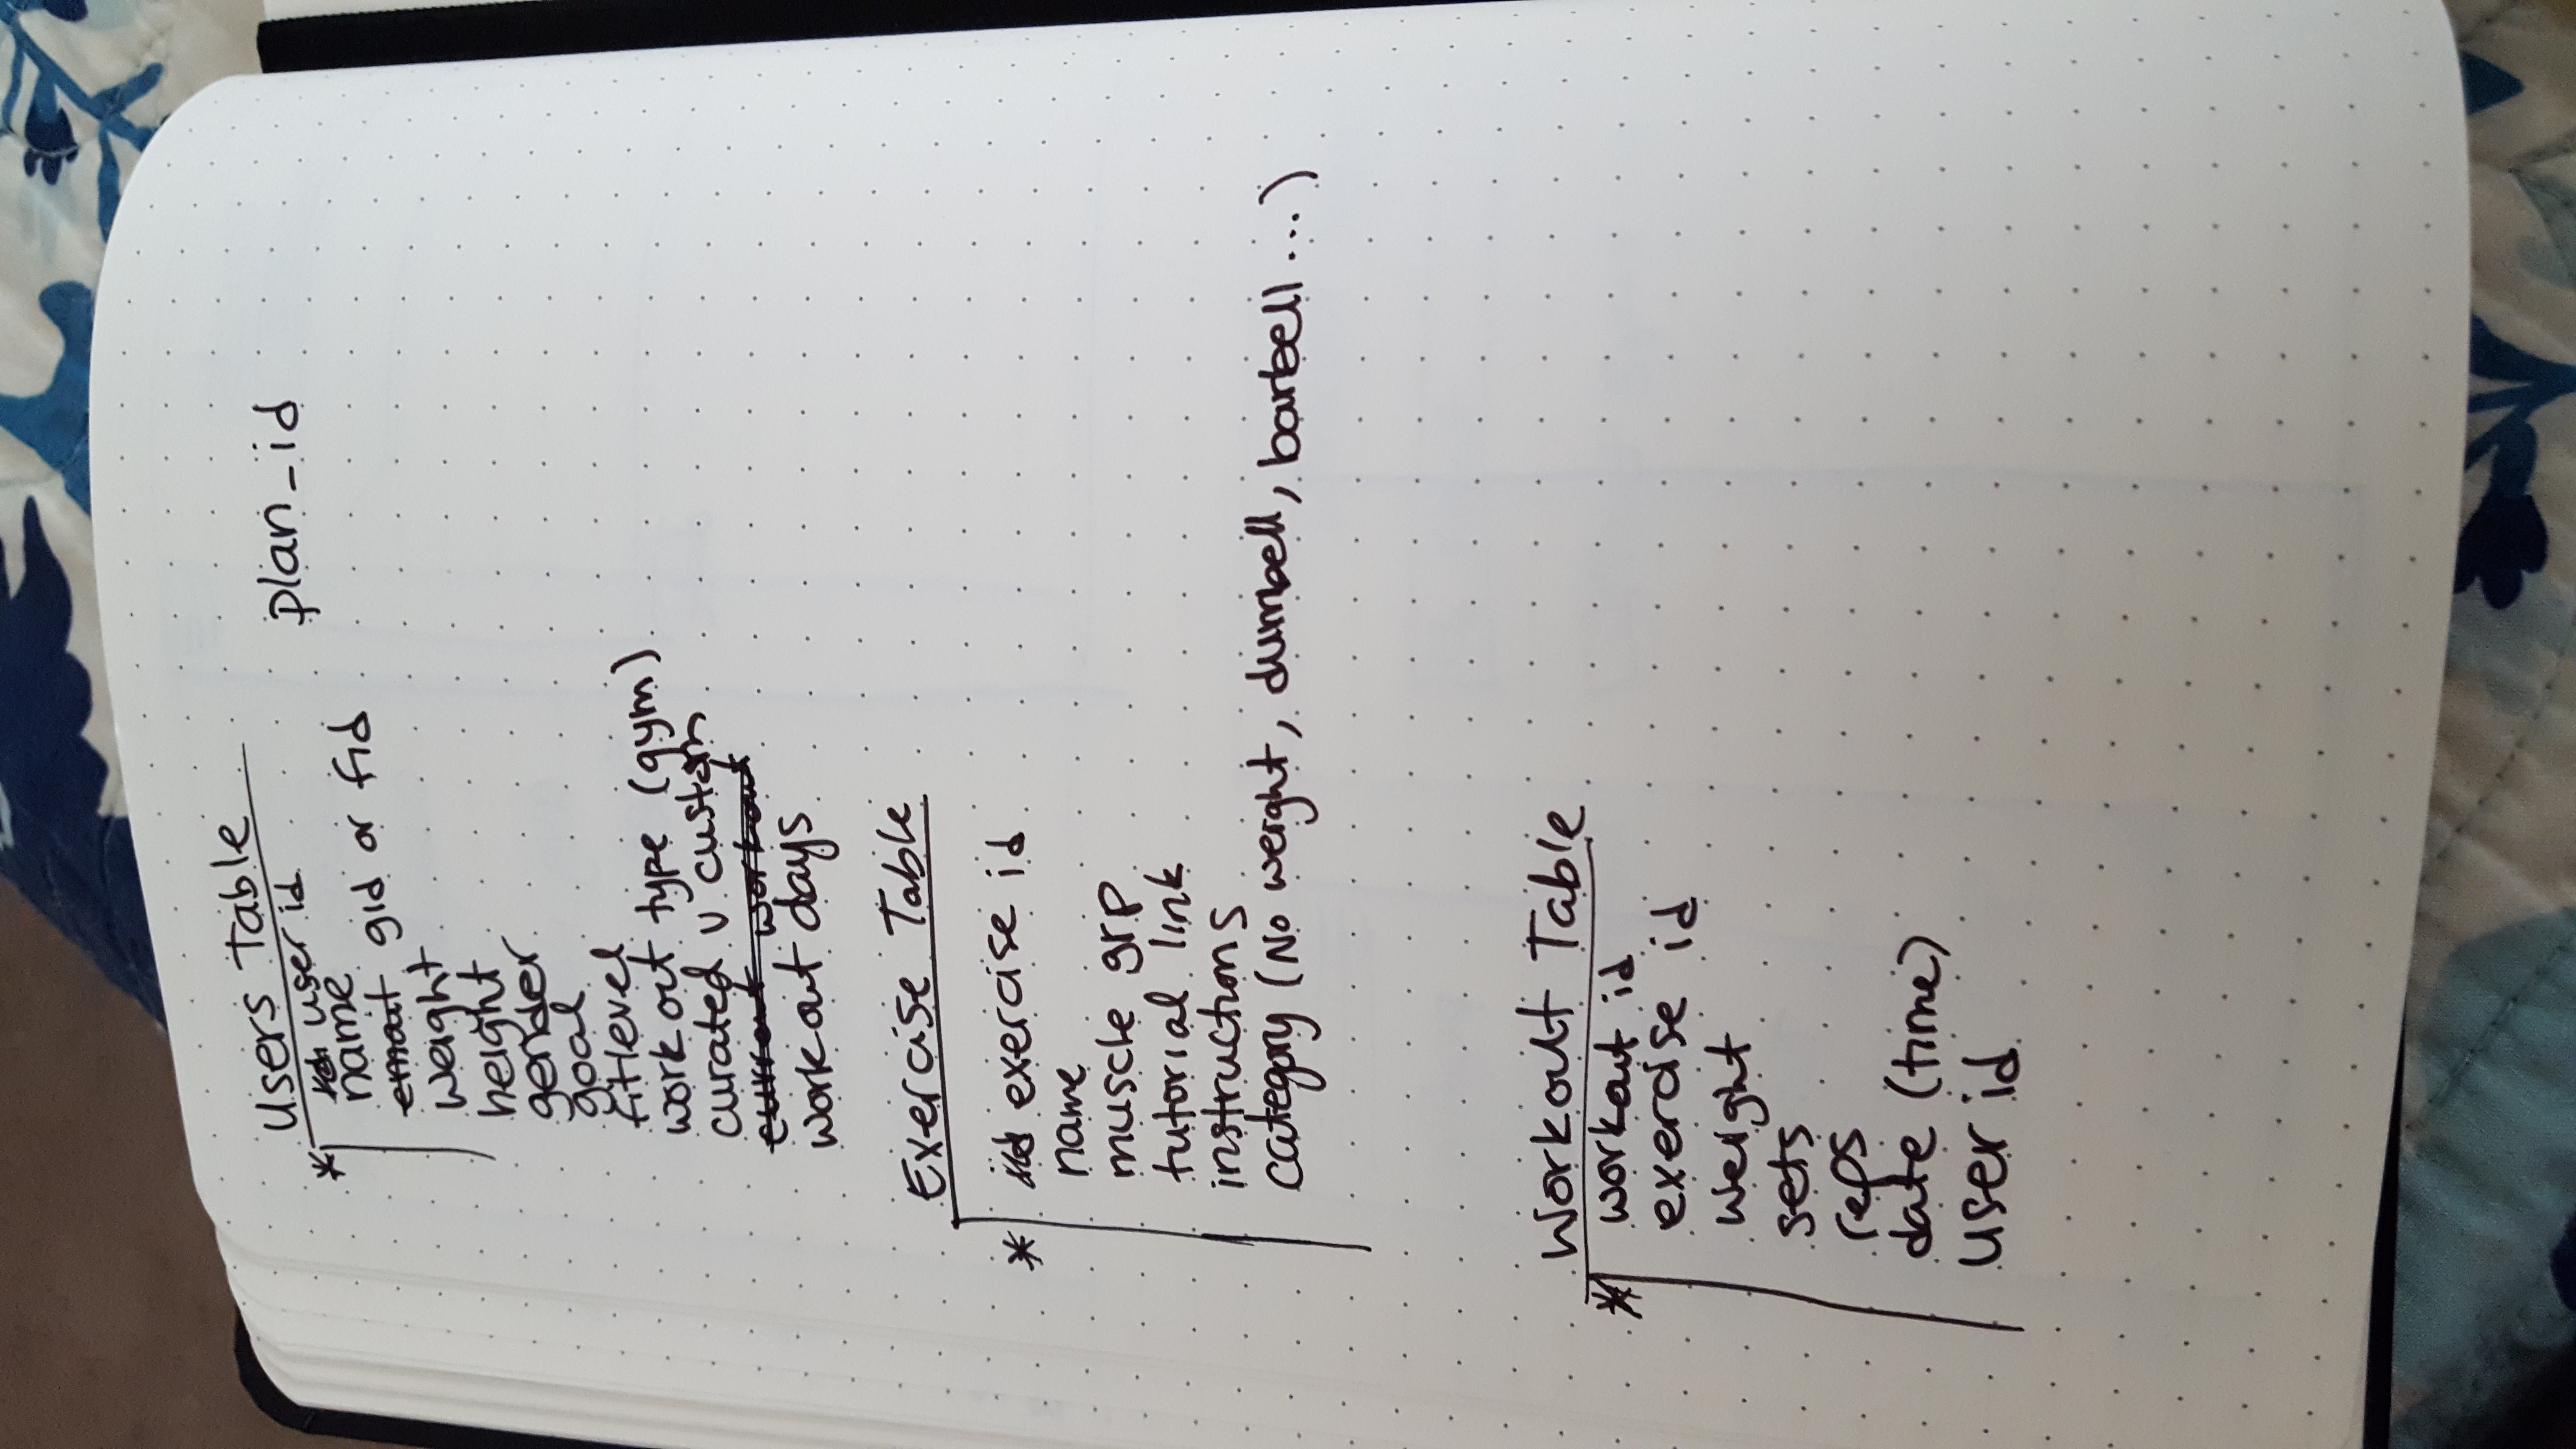 Users Table
plan_id
* user id
name
email gid or fid
weight
height
gender
goal
fitlevel
workout type (gym)
curated v custom
current workout
workout days
Exercise Table
* id exercise id
name
muscle grp
tutorial link
instructions
category (No weight, dumbell, barbell...)
Workout Table
* workout id
exercise id
weight
sets
reps
date (time)
user id